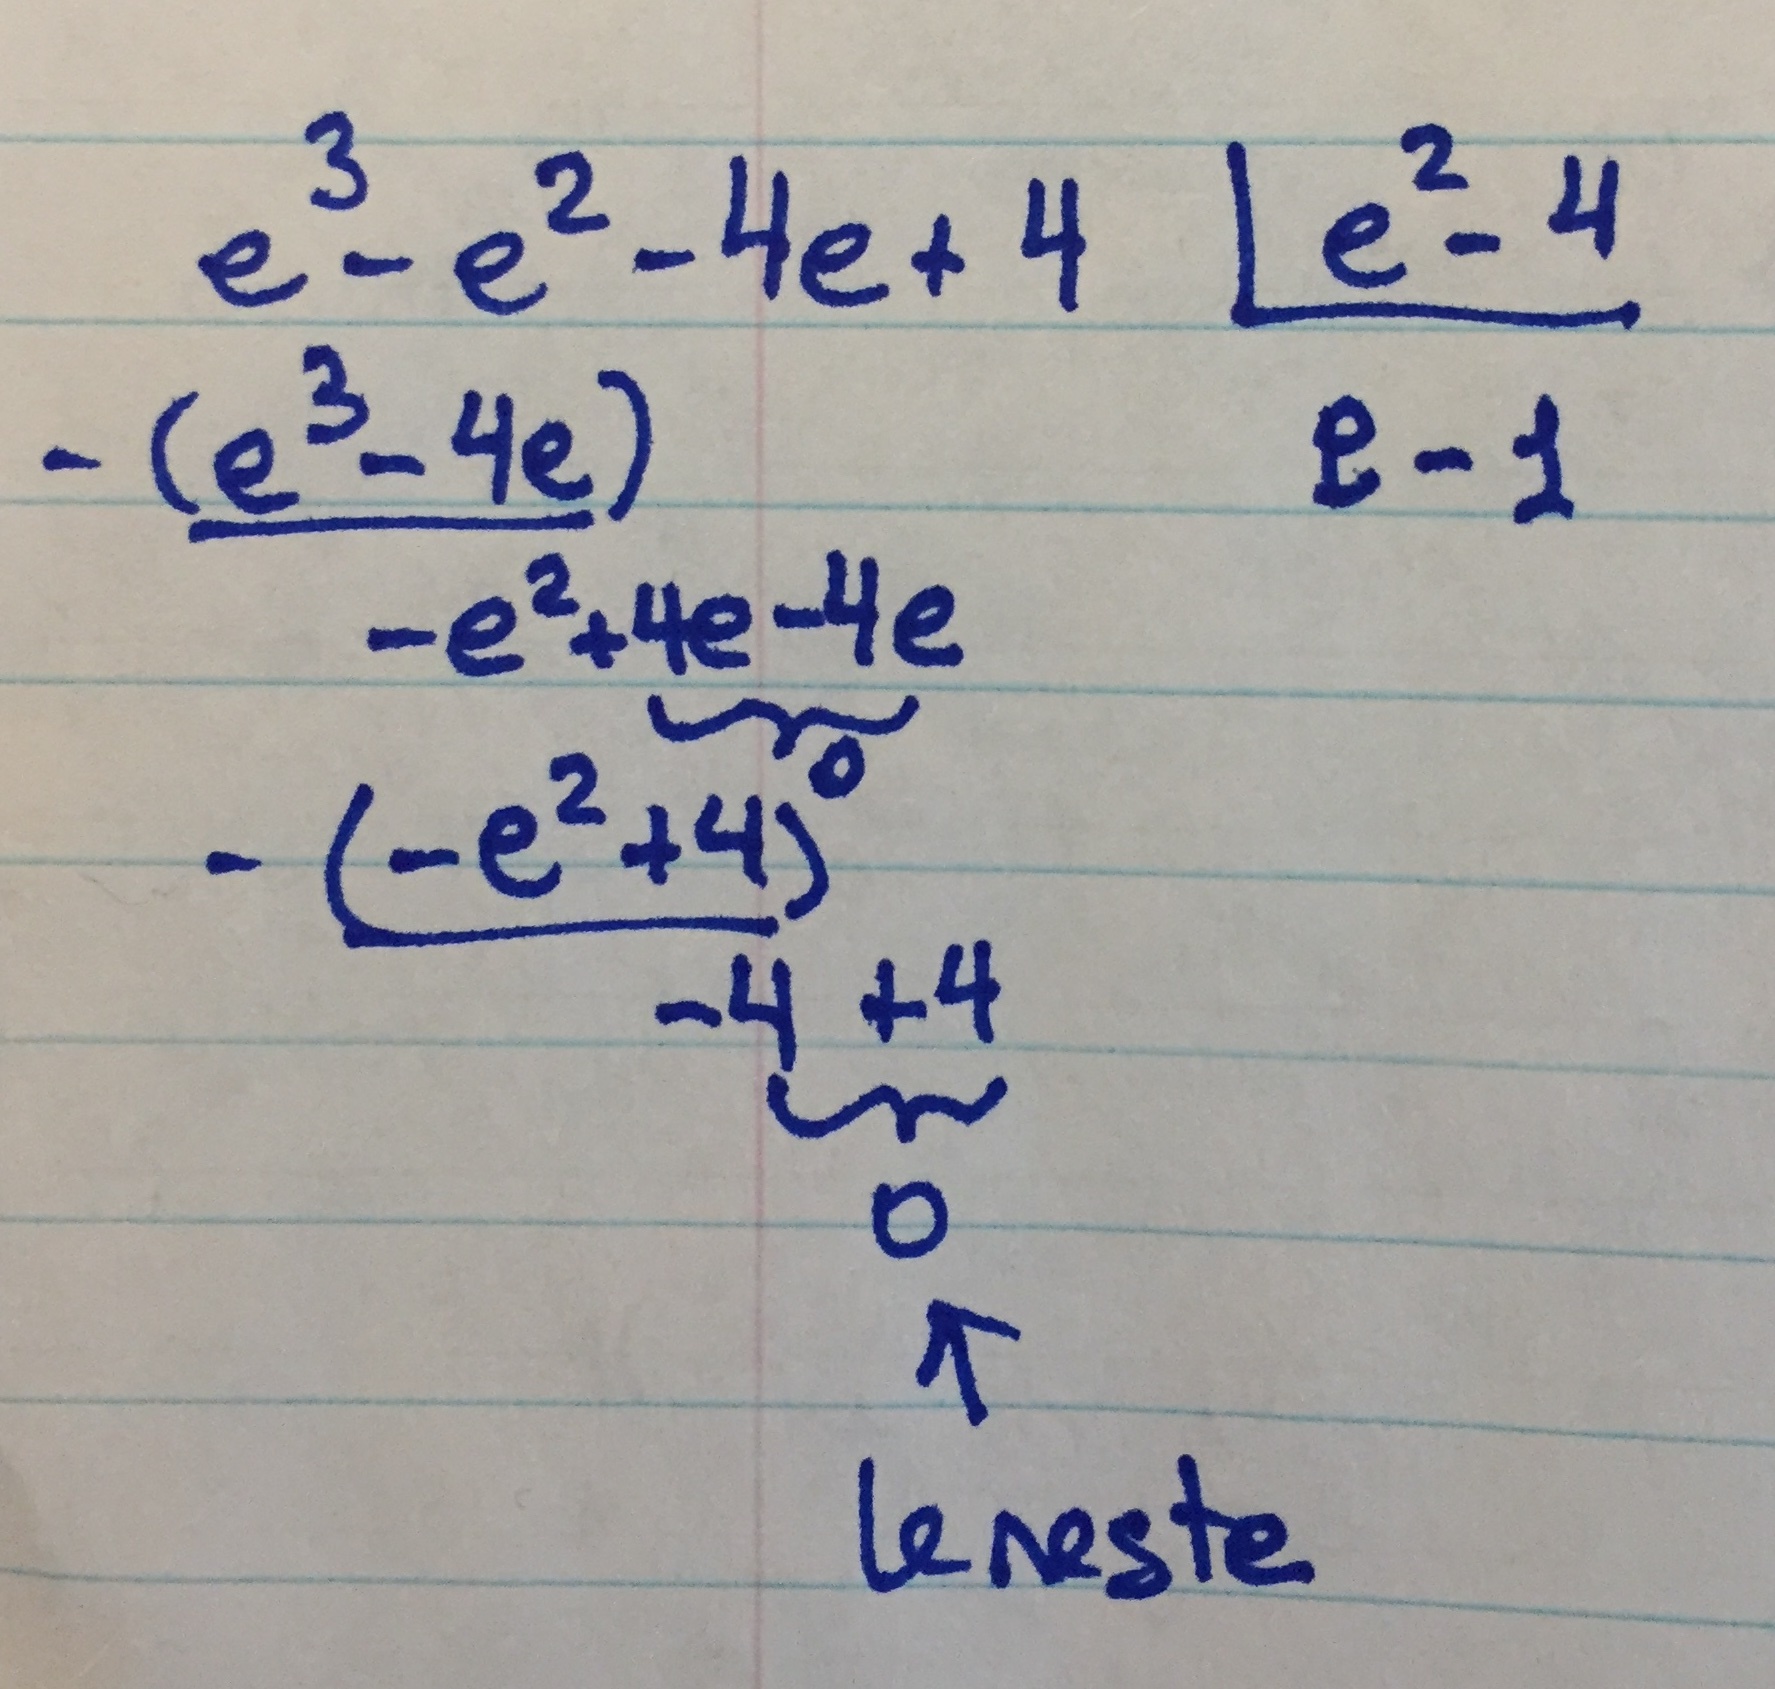 e³ - e² - 4e + 4 | e² - 4
- (e³ - 4e) e - 1
-e² + 4e - 4e
0
- (-e² + 4)
-4 + 4
0
↑
le reste